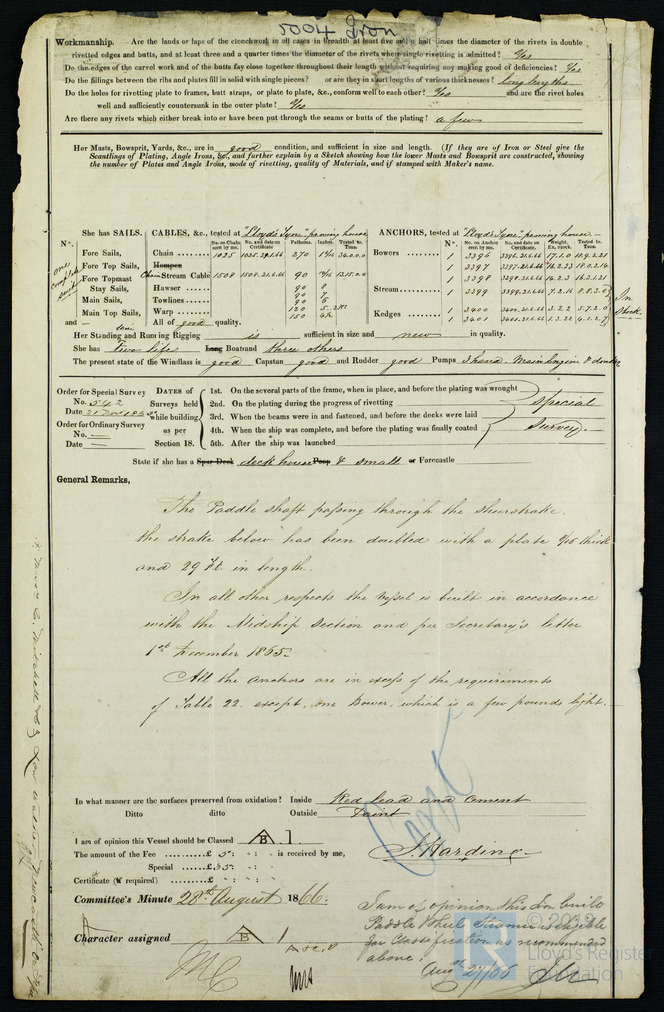 5004 Iron
Workmanship. Are the lands or laps of the clenchwork in all cases in breadth at least five and a half times the diameter of the rivets in double
rivetted edges and butts, and at least three and a quarter times the diameter of the rivets where single rivetting is admitted? Yes
Do the edges of the carvel work and of the butts fay close together throughout their length without requiring any making good of deficiencies? Yes
Do the fillings between the ribs and plates fill in solid with single pieces? or are they in short lengths of various thicknesses? long lengths
Do the holes for rivetting plate to frames, butt straps, or plate to plate, &c., conform well to each other? Yes and are the rivet holes
well and sufficiently countersunk in the outer plate? Yes
Are there any rivets which either break into or have been put through the seams or butts of the plating? a few
Her Masts, Bowsprit, Yards, &c., are in good condition, and sufficient in size and length. (If they are of Iron or Steel give the
Scantlings of Plating, Angle Irons, &c., and further explain by a Sketch showing how the lower Masts and Bowsprit are constructed, showing
the number of Plates and Angle Irons, mode of rivetting, quality of Materials, and if stamped with Maker's name.
She has SAILS. CABLES, &c., tested at "Lloyd's Tyne" proving house ANCHORS, tested at "Lloyd's Tyne" proving house
N°. No. on Chain seen by me. No. and date on Certificate Fathoms. Inches. Tested to Tons. No. on Anchor seen by me. No. and date on Certificate. Weight. Ex. stock. Tested to Tons.
one complete suit
Fore Sails, Chain 1035 270 Bowers 1 3396 17.1.0
Fore Top Sails, Hempen 1 3397
Fore Topmast Chain Stream Cable 1508 90 1 3398
Stay Sails, Hawser 90 8 Stream 1 3399
Main Sails, Towlines 90 7
Main Top Sails, Warp 120 5 Kedges 1 3400 3.2.2 5.7.2
and — All of good quality. 1 3401
In stock
Her Standing and Running Rigging is sufficient in size and new in quality.
She has two life Long Boat and three others
The present state of the Windlass is good Capstan good and Rudder good Pumps 2 hand. Main Engine & donkey
Order for Special Survey
No. 542
Order for Ordinary Survey
No. —
Date —
DATES of Surveys held while building as per Section 18.
1st. On the several parts of the frame, when in place, and before the plating was wrought
2nd. On the plating during the progress of rivetting
3rd. When the beams were in and fastened, and before the decks were laid
4th. When the ship was complete, and before the plating was finally coated
5th. After the ship was launched
special
survey.
State if she has a Spar Deck deck house Poop & small or Forecastle
General Remarks,
The Paddle shaft passing through the sheerstrake.
the strake below has been doubled with a plate thick
and 29 ft. in length.
In all other respects the vessel is built in accordance
with the Midship Section and per Secretary's letter
1st December 1865.
All the anchors are in excess of the requirements
of Table 22. except one Bower. which is a few pounds light.
In what manner are the surfaces preserved from oxidation? Inside Red lead and cement
Ditto ditto Outside Paint
I am of opinion this Vessel should be Classed B 1.
The amount of the Fee £ 5: is received by me,
Special £
Certificate (if required) £
J. Harding
Committee's Minute 28th August 1866.
Character assigned B 1
I am of opinion this Iron built
Paddle Wheel Steamer is eligible
for classification as recommended
above.
Aug 27/66
© 2019
Lloyd's Register
Foundation